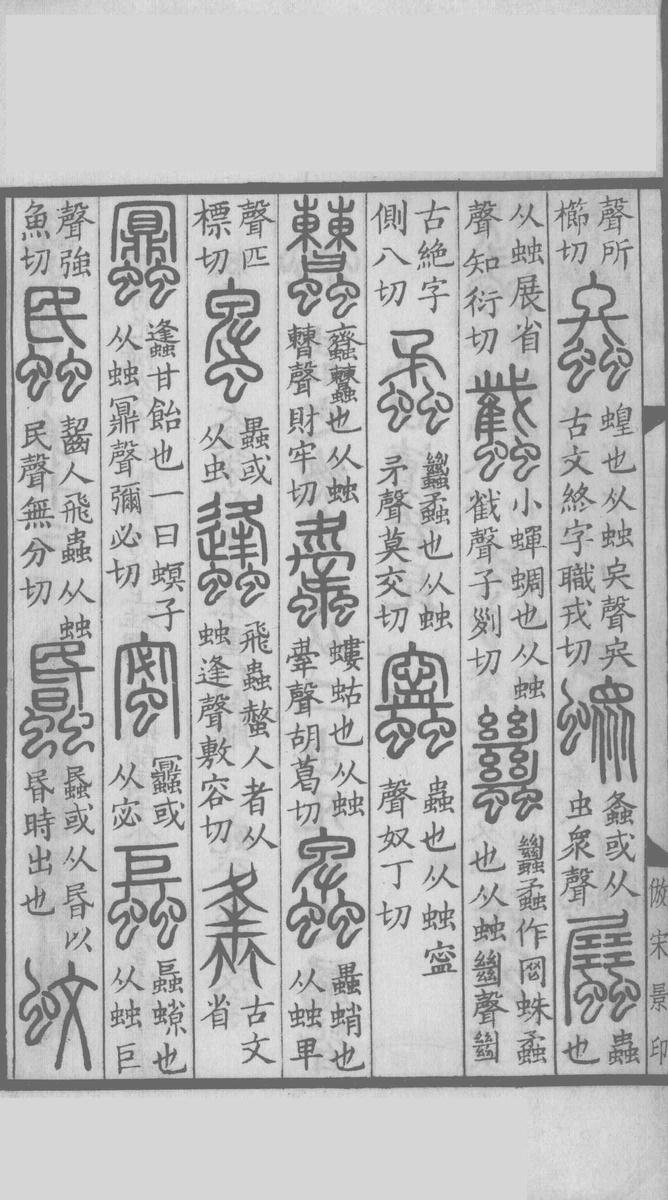 聲所櫛切螽蝗也从䖵宎聲宎古文終字職戎切螽或从虫眾聲蟲也
从䖵展省聲知衍切蠽小蟬蜩也从䖵𢧵聲子列切蠿蠿蟊作网蛛蟊也从䖵㡭聲㡭
古絶字側八切蟊蠿蟊也从䖵矛聲莫交切蟲也从䖵寍聲奴丁切
也从䖵聲財牢切螻蛄也从䖵舝聲胡葛切蛸也从䖵卑
聲匹標切蜱或从虫蠭飛蟲螫人者从䖵逢聲敷容切古文省
蠠甘飴也一曰螟子从䖵鼏聲彌必切蜜或从宓也从䖵巨
聲強魚切蟁齧人飛蟲从䖵民聲無分切蟁或从昬以昬時出也蚊
倣宋景印